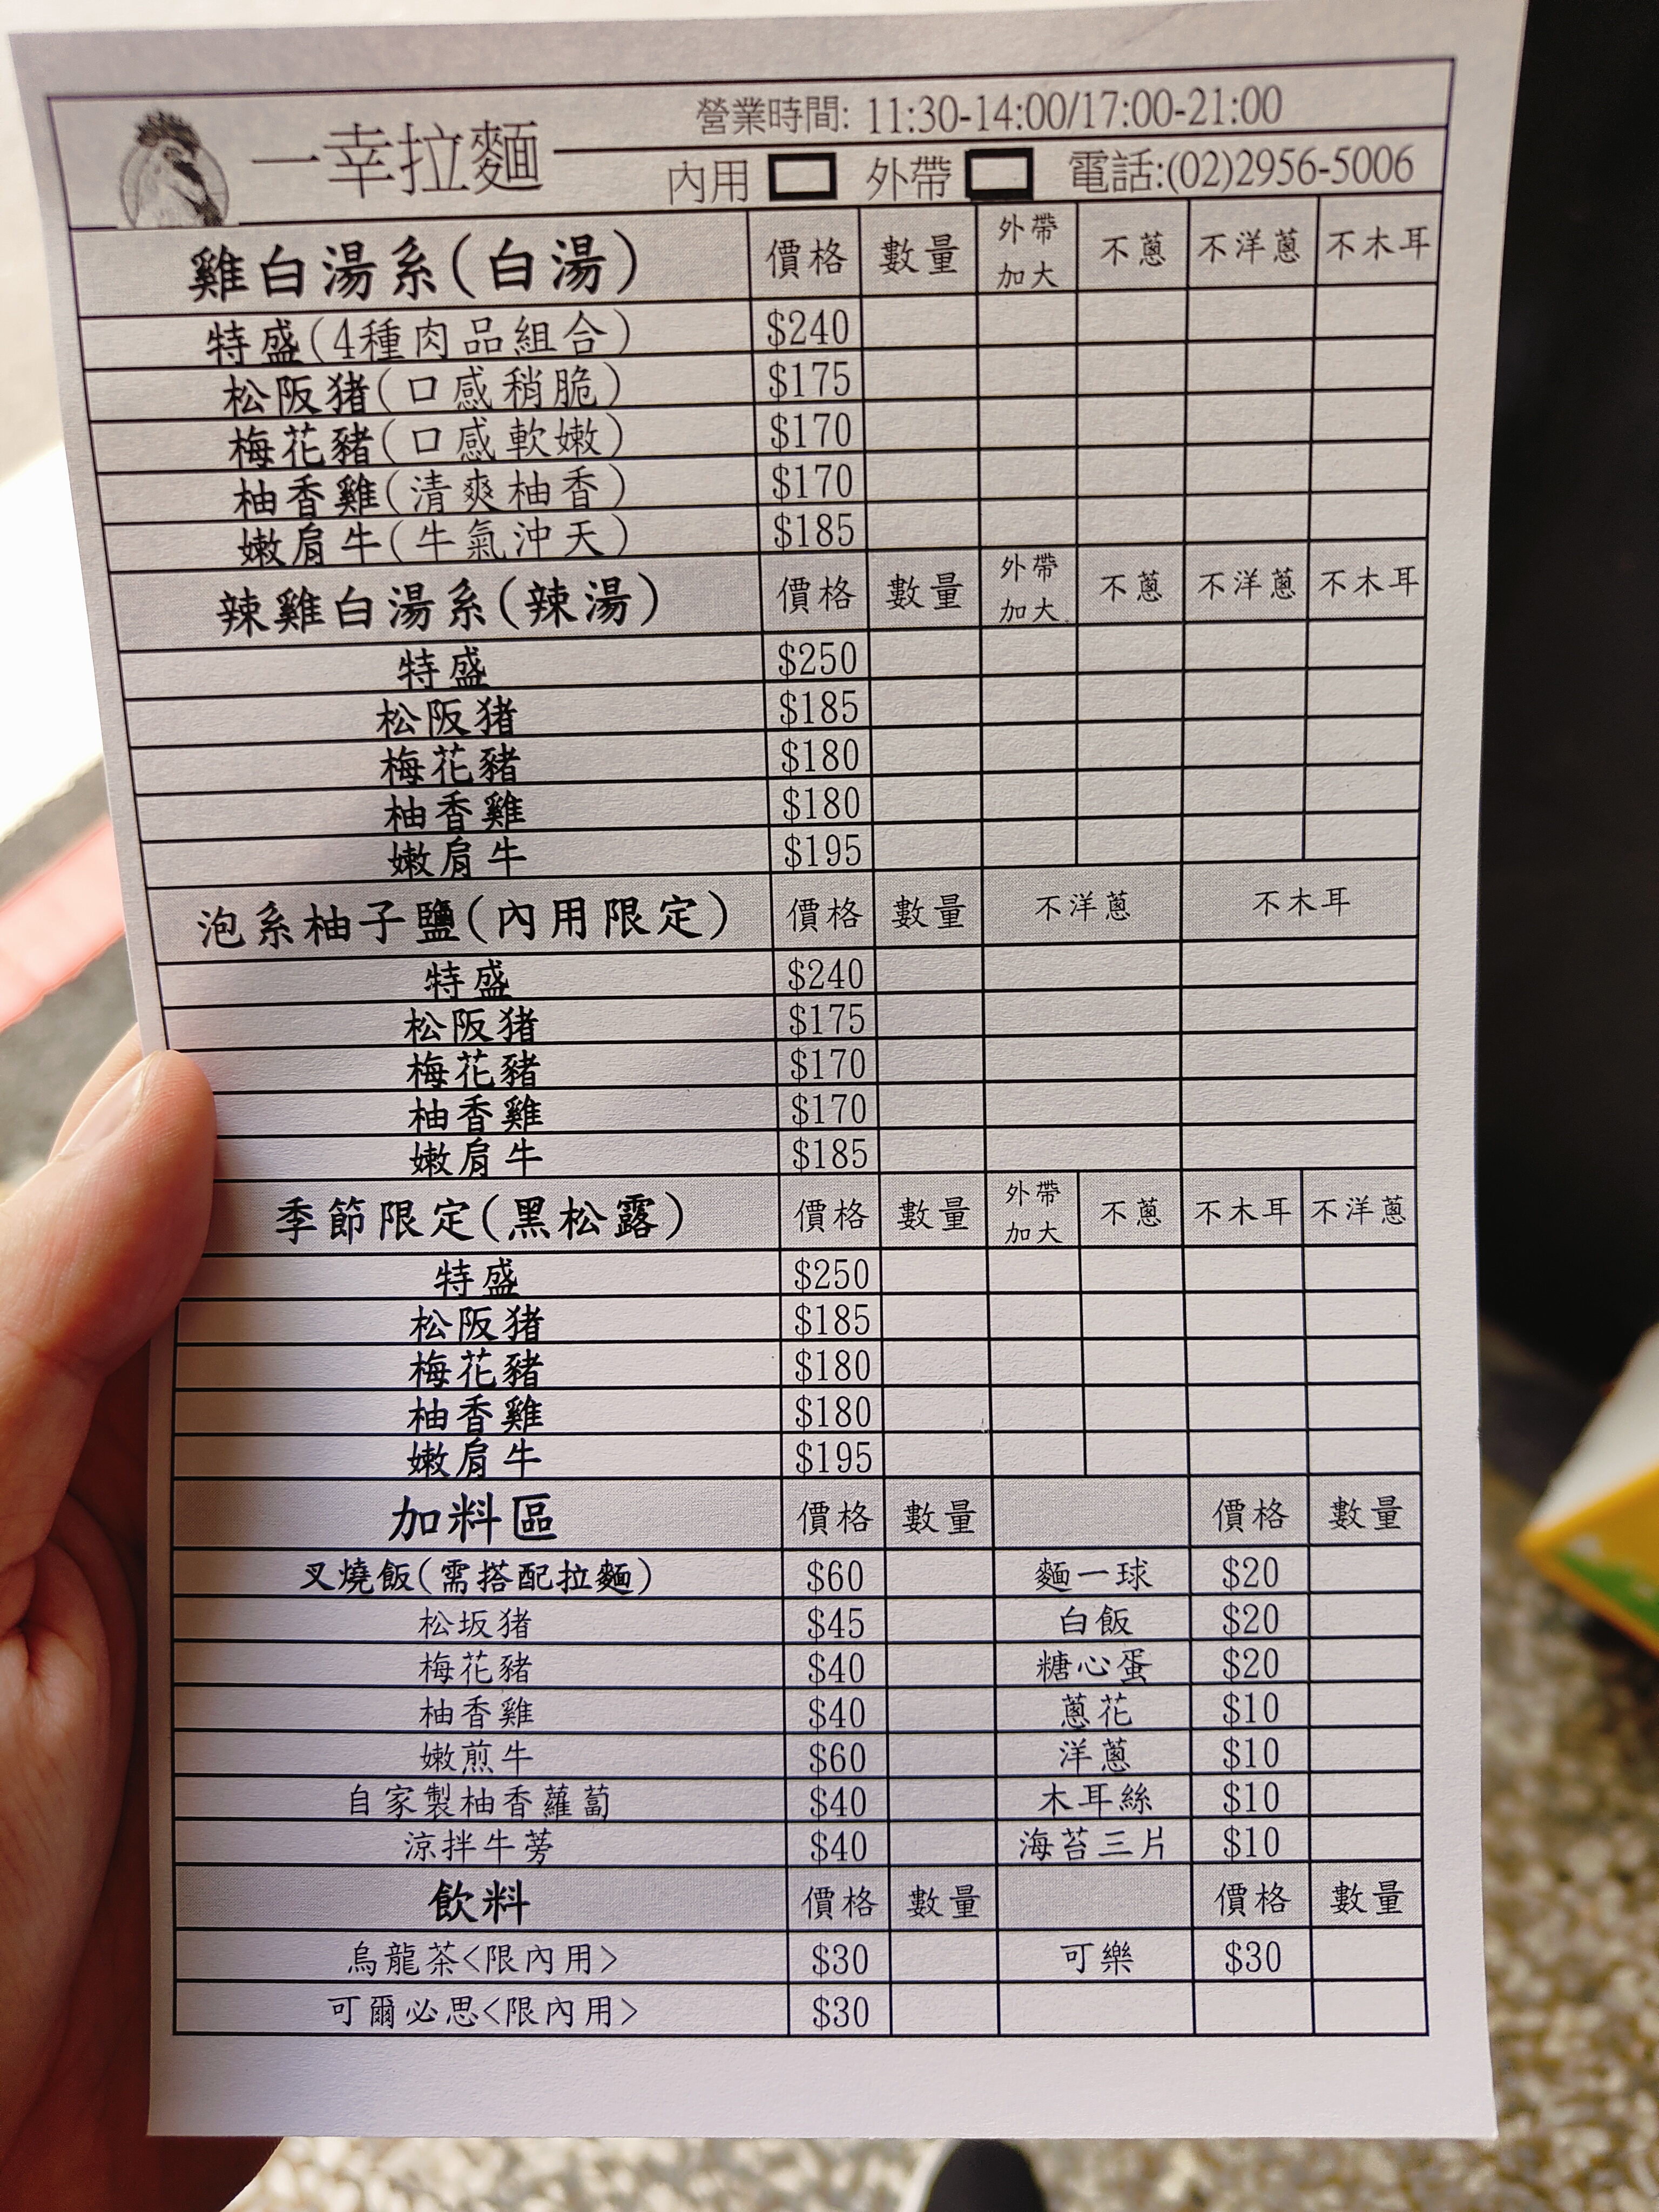 一幸拉麵
營業時間: 11:30-14:00/17:00-21:00
內用 外帶 電話:(02)2956-5006
雞白湯系(白湯) 價格 數量 外帶加大 不蔥 不洋蔥 不木耳
特盛(4種肉品組合) $240
松阪豬(口感稍脆) $175
梅花豬(口感軟嫩) $170
柚香雞(清爽柚香) $170
嫩肩牛(牛氣沖天) $185
辣雞白湯系(辣湯) 價格 數量 外帶加大. 不蔥 不洋蔥 不木耳
特盛 $250
松阪豬 $185
梅花豬 $180
柚香雞 $180
嫩肩牛 $195
泡系柚子鹽(內用限定) 價格 數量 不洋蔥 不木耳
特盛 $240
松阪豬 $175
梅花豬 $170
柚香雞 $170
嫩肩牛 $185
季節限定(黑松露) 價格 數量 外帶加大 不蔥 不木耳 不洋蔥
特盛 $250
松阪豬 $185
梅花豬 $180
柚香雞 $180
嫩肩牛 $195
加料區 價格 數量 價格 數量
叉燒飯(需搭配拉麵) $60 麵一球 $20
松坂豬 $45 白飯 $20
梅花豬 $40 糖心蛋 $20
柚香雞 $40 蔥花 $10
嫩煎牛 $60 洋蔥 $10
自家製柚香蘿蔔 $40 木耳絲 $10
涼拌牛蒡 $40 海苔三片 $10
飲料 價格 數量 價格 數量
烏龍茶<限內用> $30 可樂 $30
可爾必思<限內用> $30